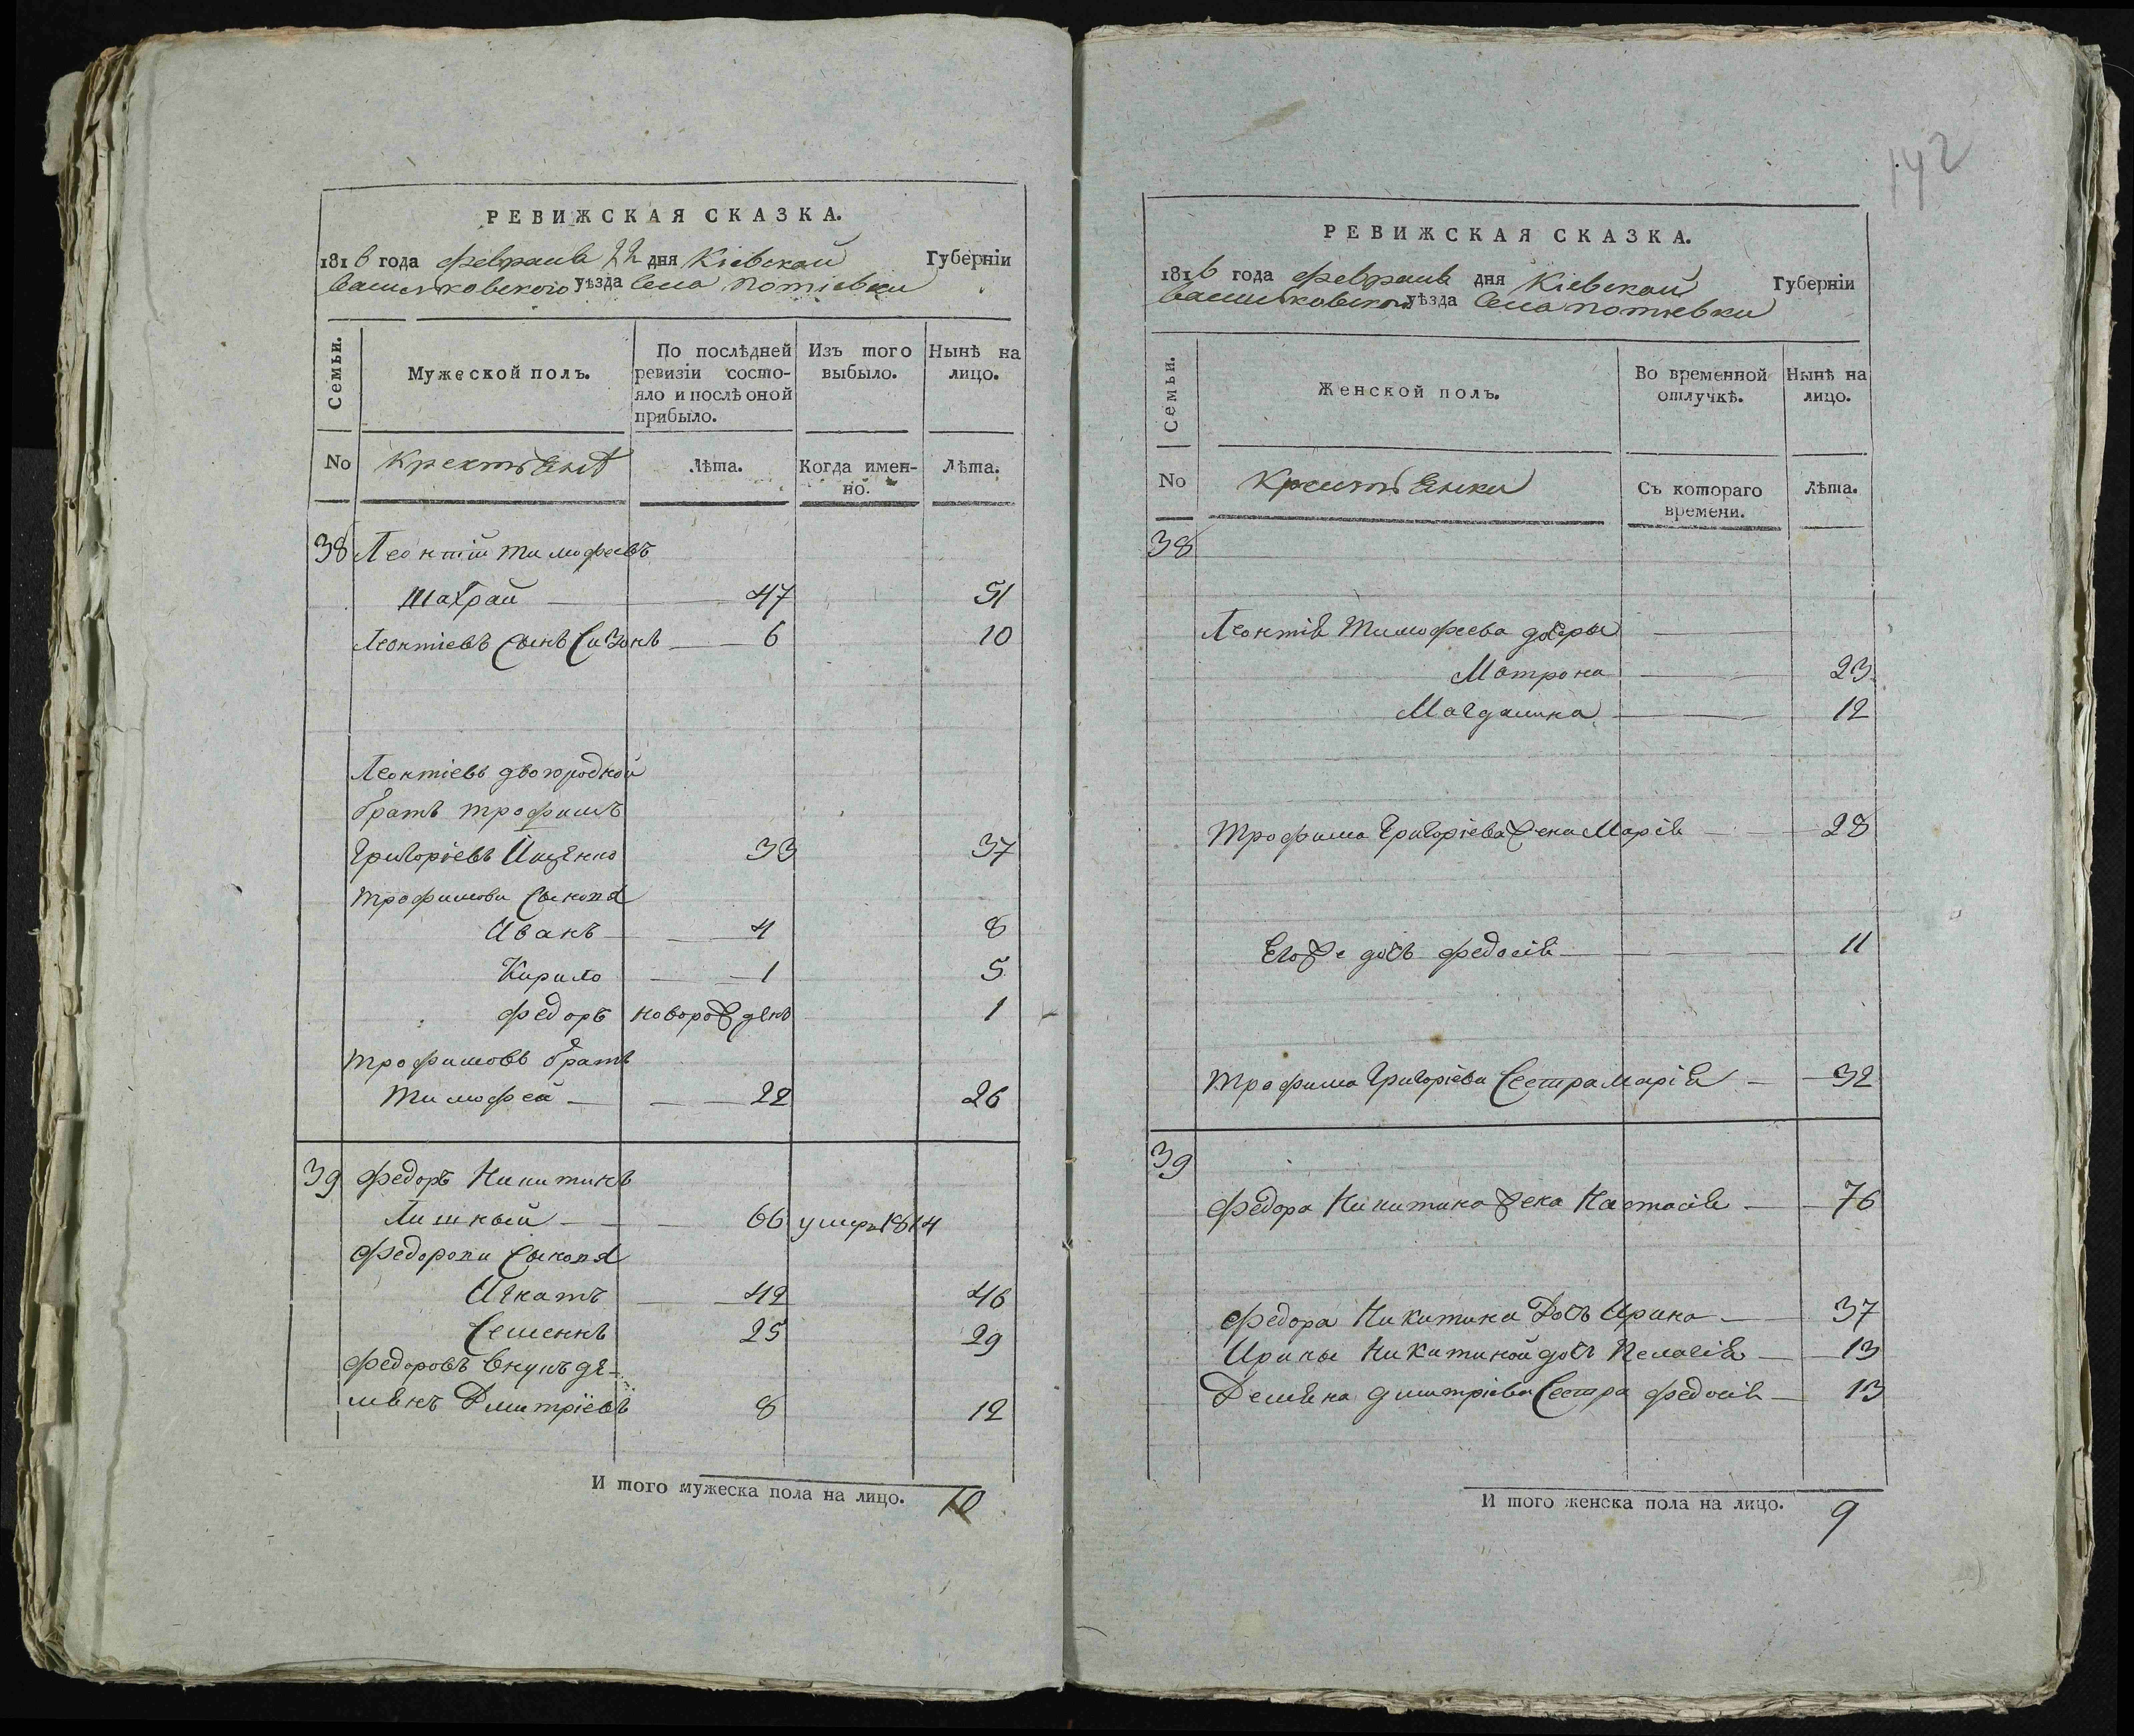 РЕВИЖСКАЯ СКАЗКА.
1816 года февраля 22 дня Кіевской Губерніи
васильковского уѣзда села потіевки
Семьи.
Мужеской полъ.
По послѣдней ревизіи состо-
яло и послѣ оной
прибыло.
Изъ того
выбыло.
Нынѣ на
лицо.
No
крестьянѣ
Лѣта.
Когда имен-
но.
Лѣта.
38 Леонтій тимофеевъ
шаграй 47 51
Леонтіевъ сынъ сизонъ 6 10
Леонтіевъ двоюродной
братъ трофимъ
григоріевъ 33 37
трофимови сыновя
Иванъ 4 8
Кирило 1 5
федоръ новорожденъ 1
трофимовъ братъ
тимофей 22 26
39 федоръ Никитинъ
66 умре 1814
федорови сыновя
Игнатъ 42 46
семенъ 25 29
федоровъ внукъ де-
мянъ Дмитріевъ 8 12
И того мужеска пола на лицо. 10
142
РЕВИЖСКАЯ СКАЗКА.
1816 года февраля дня Кіевской Губерніи
васильковского уѣзда села потіевки
Семьи.
Женской полъ.
Во временной
отлучкѣ.
Нынѣ на
лицо.
No
крестьянки
Съ котораго
времени.
Лѣта.
38
Леонтія тимофеева дочеры
Матрона 23
Магдалина 12
трофима григоріева жена Марія 28
Его же дочь федосія 11
трофима григоріева сестра марія 32
39
федора Никитина жена Настасія 76
федора Никитина Дочь Ирина 37
Ирины Никитиной дочь Пелагія 13
Демяна дмитріева сестра федосія 13
И того женска пола на лицо. 9